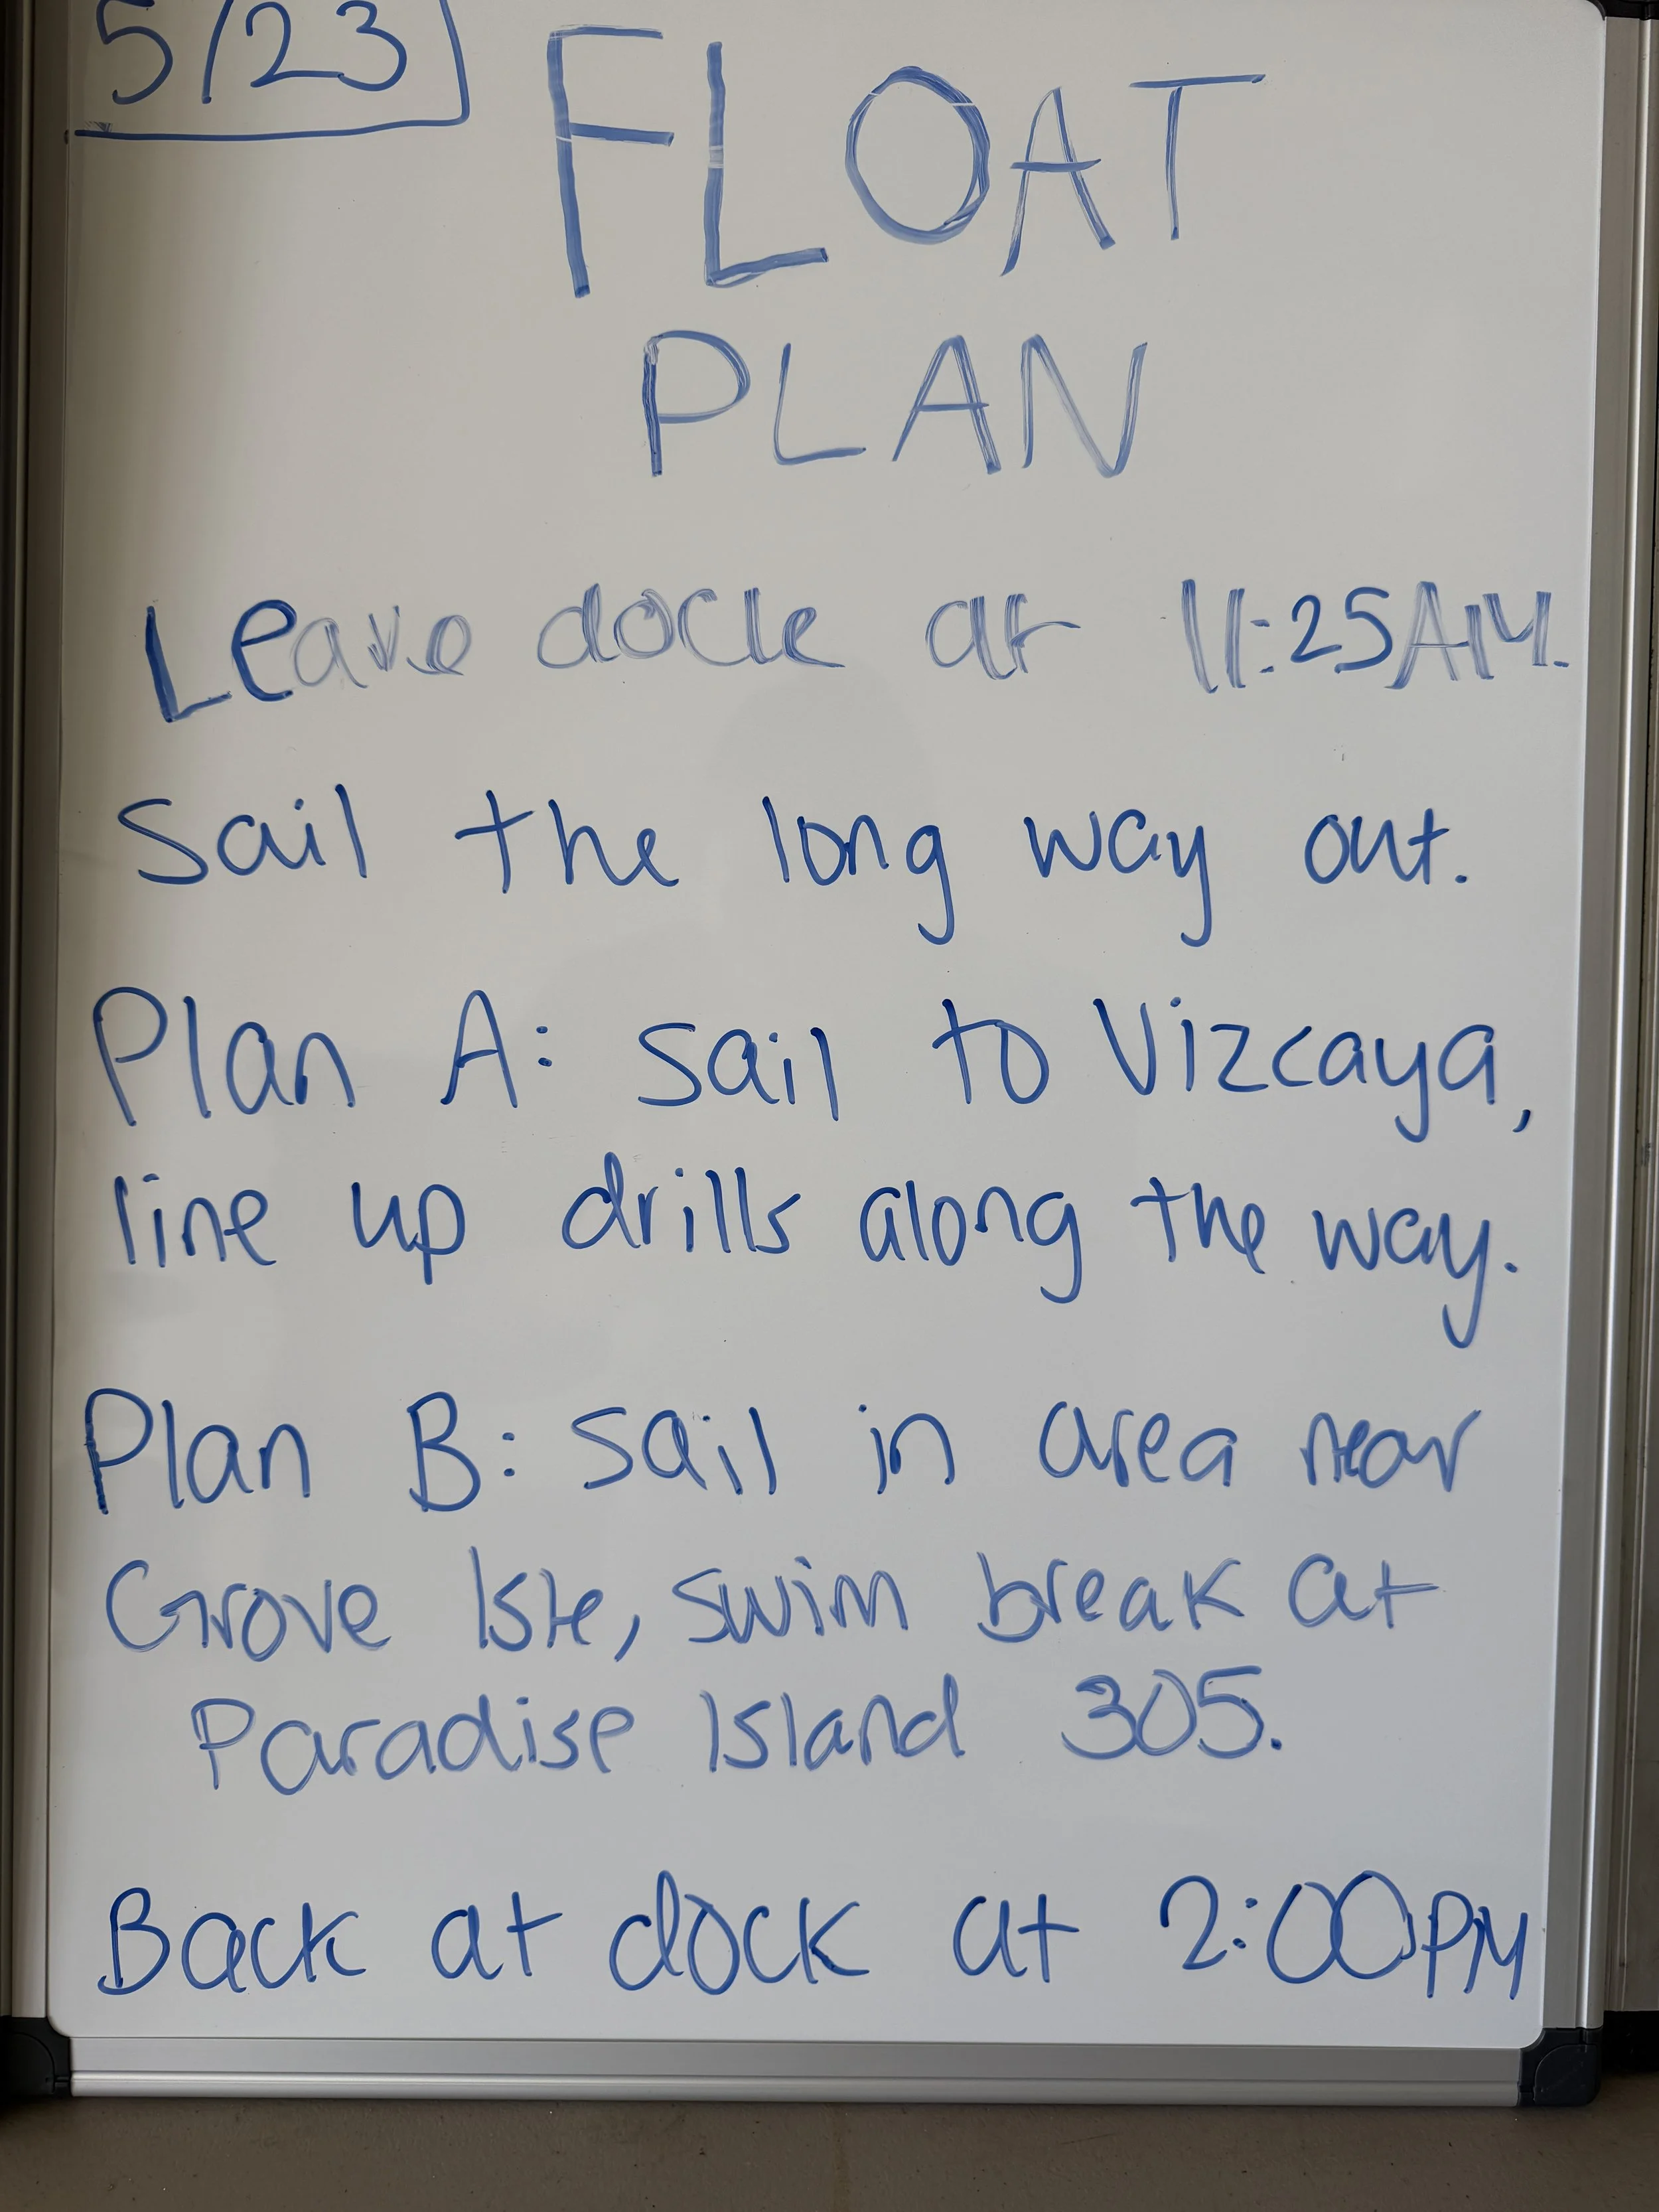 5/23
FLOAT
PLAN
Leave dock at 11:25AM.
Sail the long way out.
Plan A: sail to Vizcaya,
line up drills along the way.
Plan B: sail in area near
Grove Isle, swim break at
Paradise Island 305.
Back at dock at 2:00PM